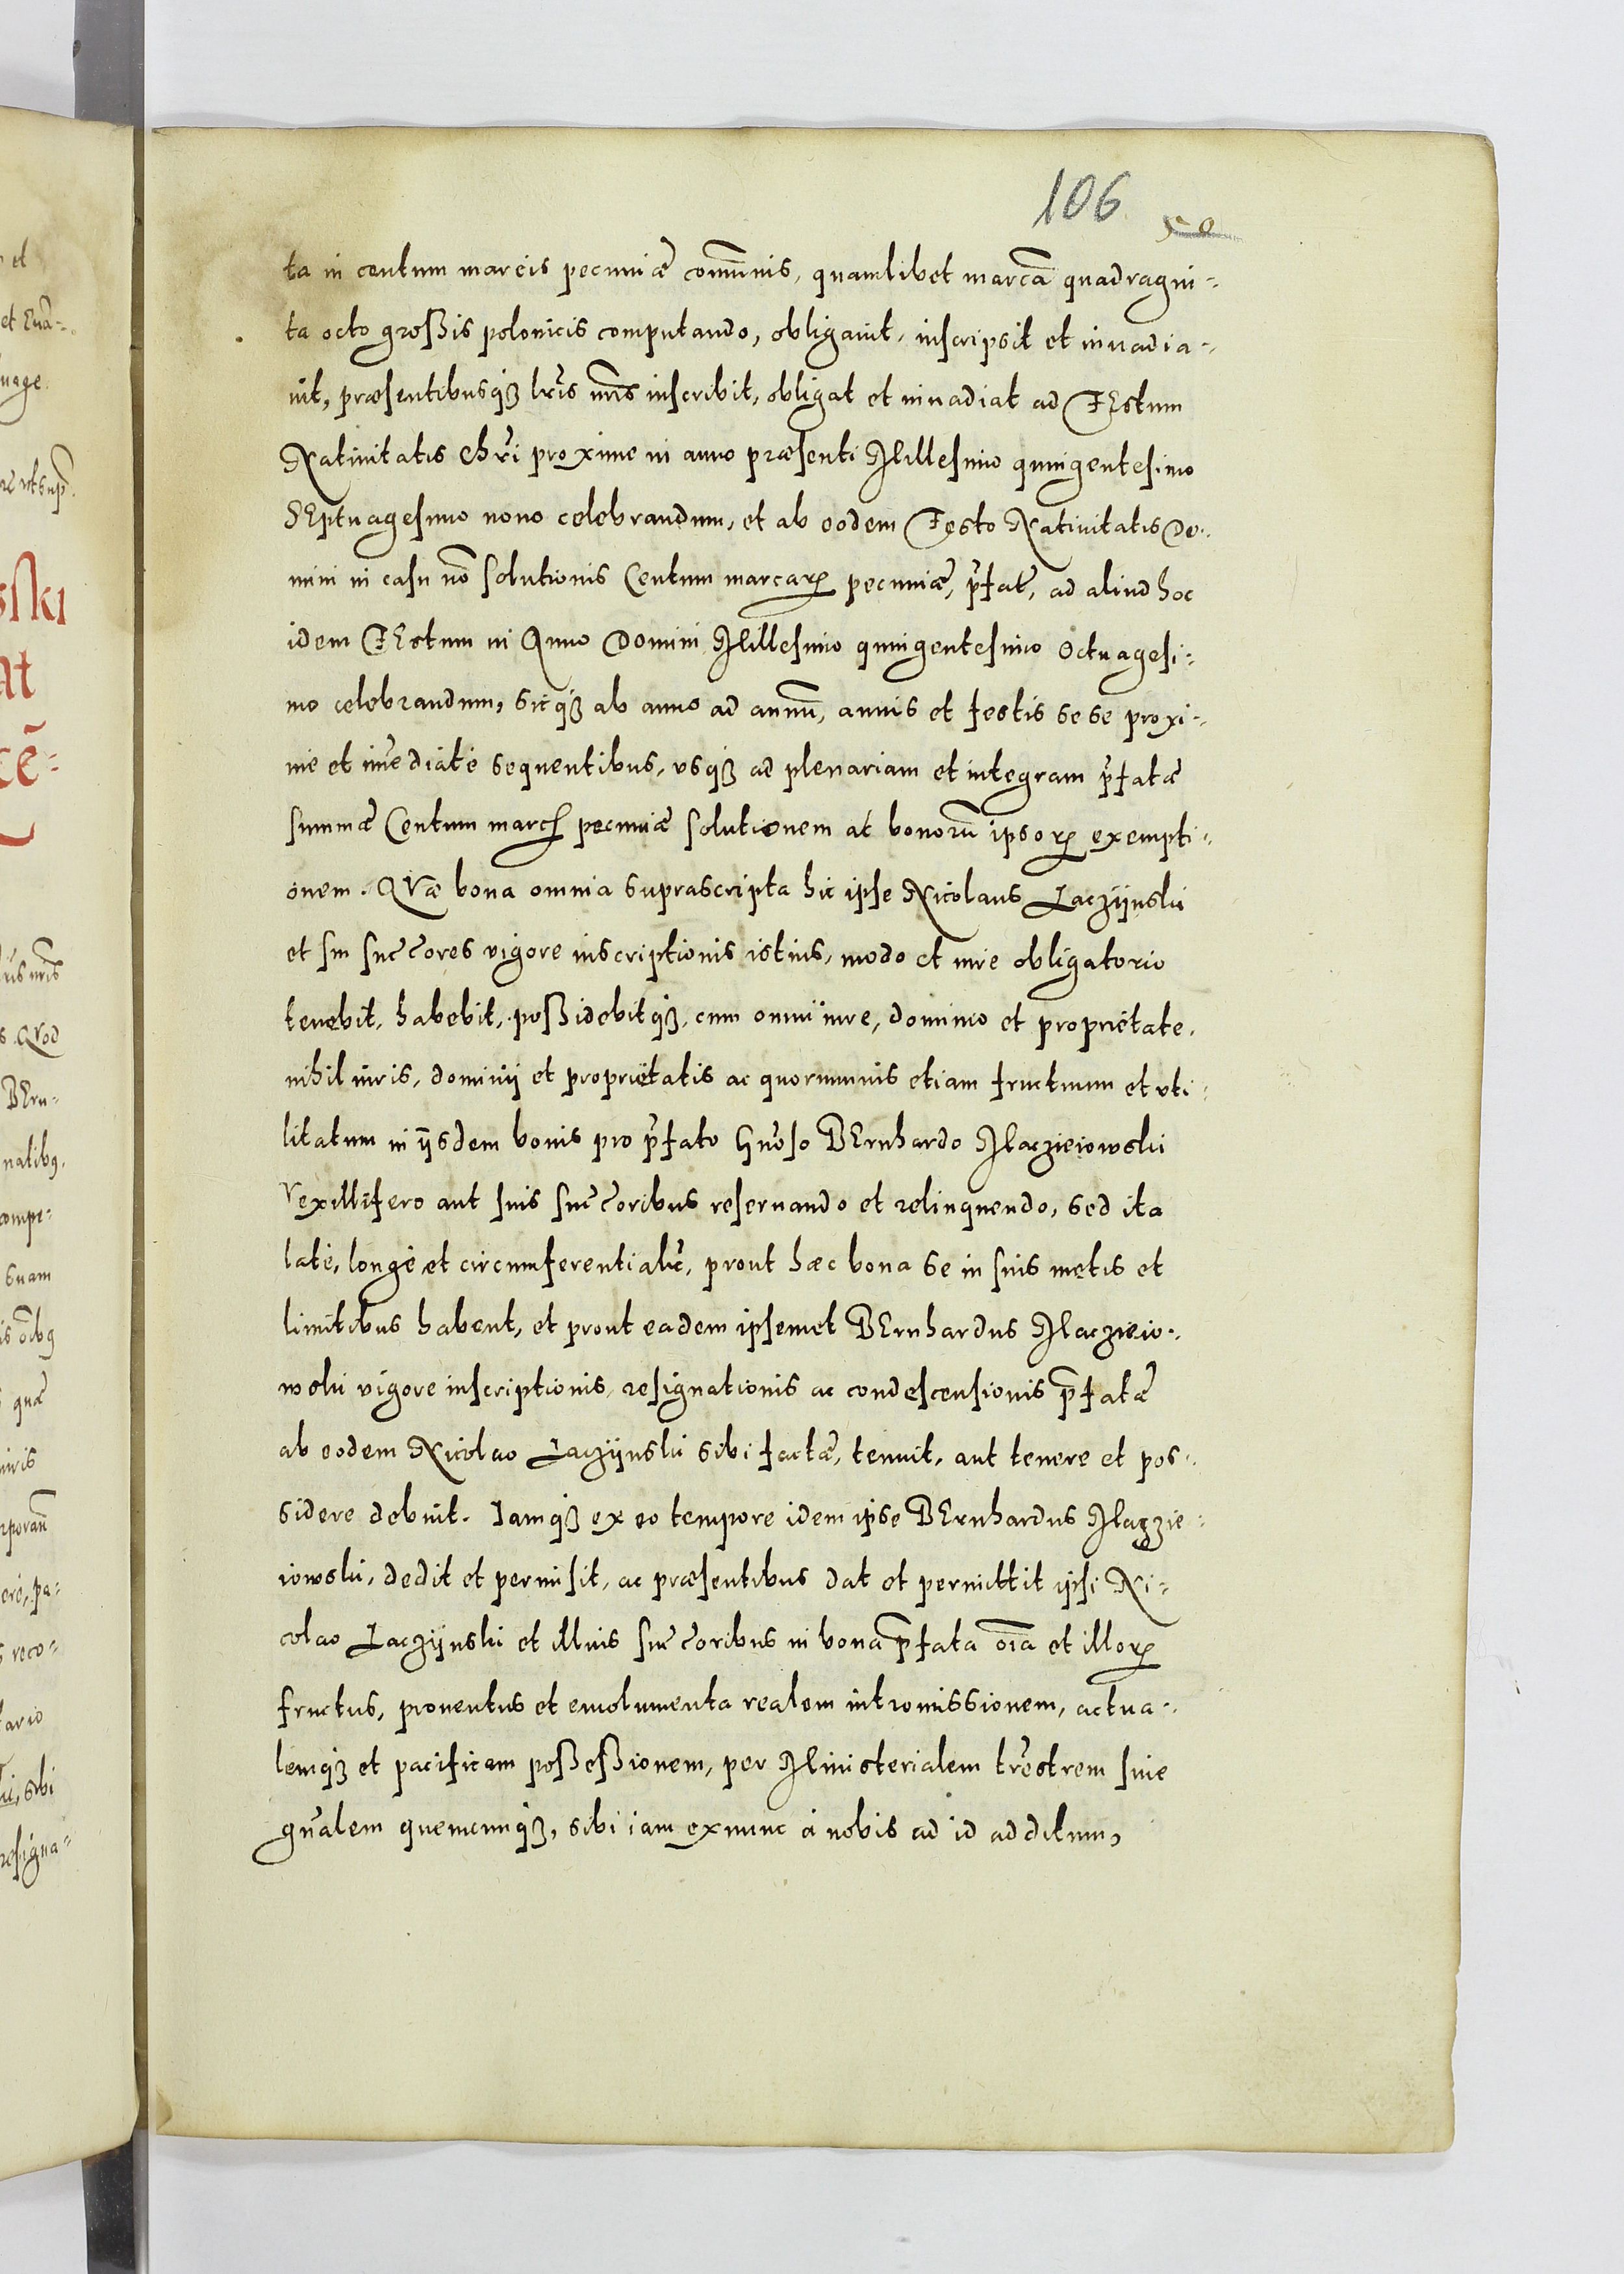 106
ta in centum marcis pecuniæ com̃unis, quamlibet marcã quadragin-
ta octo großis polonicis computando, obligauit, inscripsit et inuadia-
uit, præsentibusqȝ lr̃is nr̃is inscribit, obligat et inuadiat ad FEstum
Natiuitatis chr̃i proxime in anno præsenti Millesimo quingentesimo
SEptuagesimo nono celebrandum, et ab eodem Festo Natiuitatis Do-
mini in casu nõ solutionis Centum marcaꝝ pecuniæ, p̃fatæ, ad aliud hoc
idem FEstum in Anno Domini Millesimo quingentesimo octuagesi-
mo celebrandum, sicqȝ ab anno ad annũ, annis et festis se se proxi-
me et im̃ediatè sequentibus, vsqȝ ad plenariam et integram p̃fatæ
summæ Centum march pecuniæ solutionem at bonorũ ipsoꝝ exempti-
onem. QVæ bona omnia suprascripta hic ipse Nicolaus Laczÿnski
et sui succ̃ores vigore inscriptionis istius, modo et iure obligatorio
tenebit, habebit, poßidebitqȝ, cum omni iure, dominio et proprietate,
nihil iuris, dominij et proprietatis ac quorumuis etiam fructuum et vti-
litatum in ijsdem bonis pro p̃fato Gñoso BErnhardo Maczieiowski
Vexillifero aut suis succ̃oribus reseruando et relinquendo, sed ita
latè, longè et circumferentialr̃, prout hæc bona se in suis metis et
limitibus habent, et prout eadem ipsemet BErnhardus Maczieio-
wski vigore inscriptionis, resignationis ac condescensionis p̃fatæ
ab eodem Nicolao Laczÿnski sibi factæ, tenuit, aut tenere et pos-
sidere debuit. Iamqȝ ex eo tempore idem ipse BErnhardus Maczie-
iowski, dedit et permisit, ac præsentibus dat et permittit ipsi Ni-
colao Laczÿnski et illius succ̃oribus in bona p̃fata oĩa et illoꝝ
fructus, prouentus et emolumenta realem intromissionem, actua-
lemqȝ et pacificam poßeßionem, per Ministerialem tr̃estrem siue
gñalem quemcunqȝ, sibi iam exnunc à nobis ad id additum,